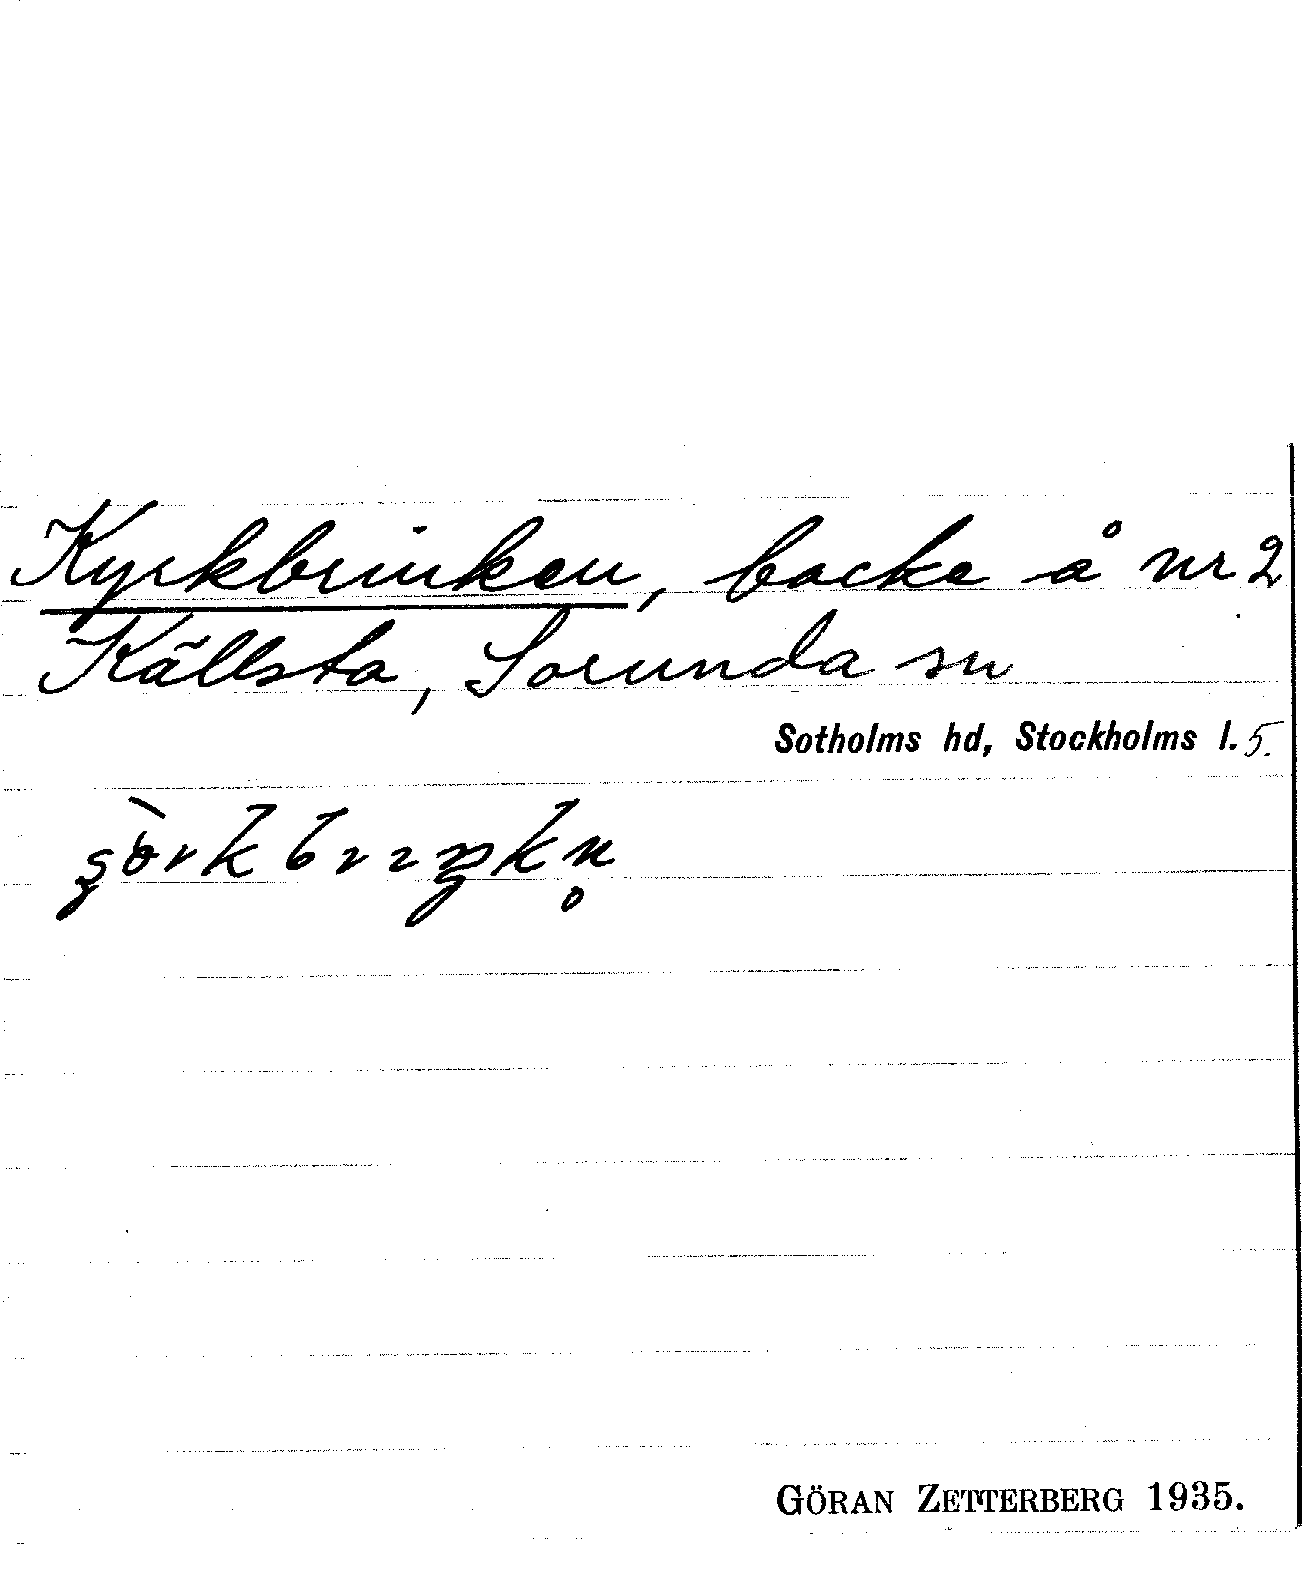 Kyrkbrinken, backe å nr 2
Källsta, Sorunda sn
Sotholms hd, Stockholms l. 5.
GÖRAN ZETTERBERG 1935.